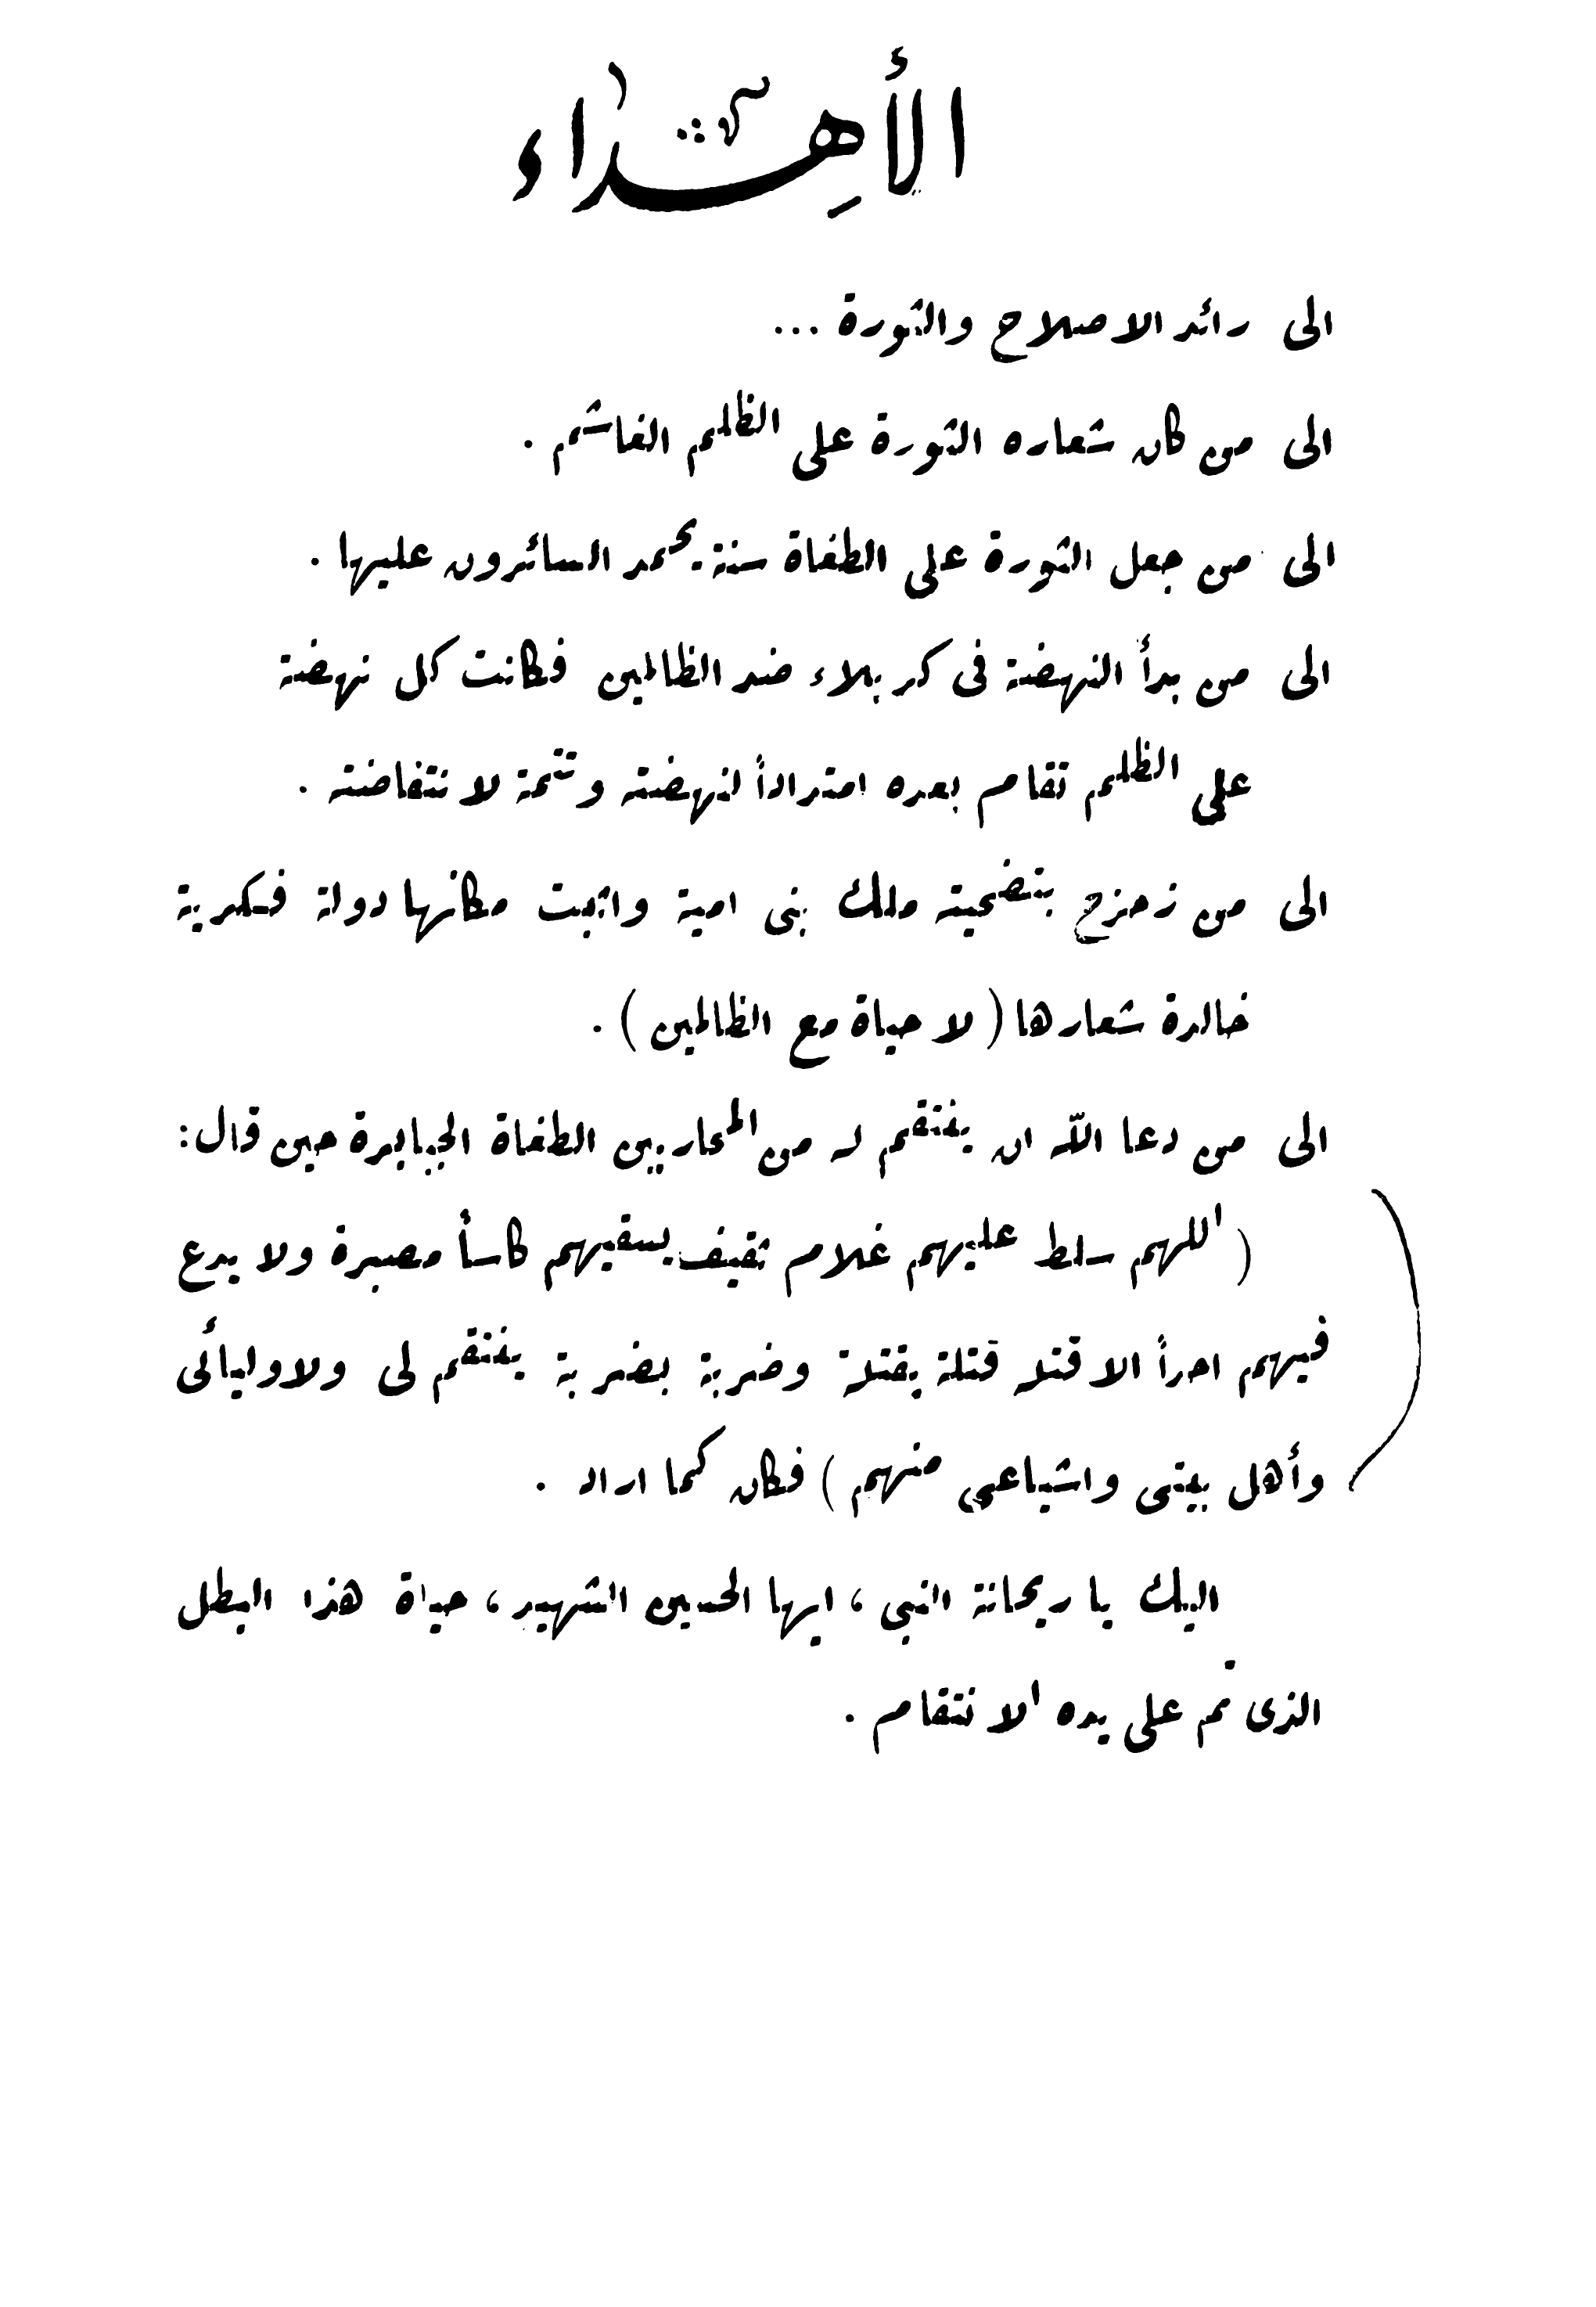 الأهِداء
الى رائد الاصلاح والثورة ...
الى من كان شعاره الثورة على الظلم الغاشم .
الى من جعل الثورة على الطغاة سنة يحمد السائرون عليها .
الى من بدأ النهضة فى كربلاء ضد الظالمين فكانت كل نهضة
على الظلم تقام بعده امتداداً لنهضته وتتمة لانتفاضته .
الى من زحزح بتضحيته ملك بنى امية واثبت مكانها دولة فكرية
خالدة شعارها ( لا حياة مع الظالمين ) .
الى من دعا الله ان ينتقم له من المحاربين الطغاة الجبابرة حين قال :
( اللهم سلط عليهم غلام ثقيف يسقيهم كاسأ مصبرة ولا يدع
فيهم احداً الا قتله قتلة بقتلة وضربة بضربة ينتقم لى ولاوليائى
وأهل بيتى واشياعى منهم ) فكان كما اراد .
اليك يا ريحانة النبى ، ايها الحسين الشهيد ، حياة هذا البطل
الذى تم على يده الانتقام .